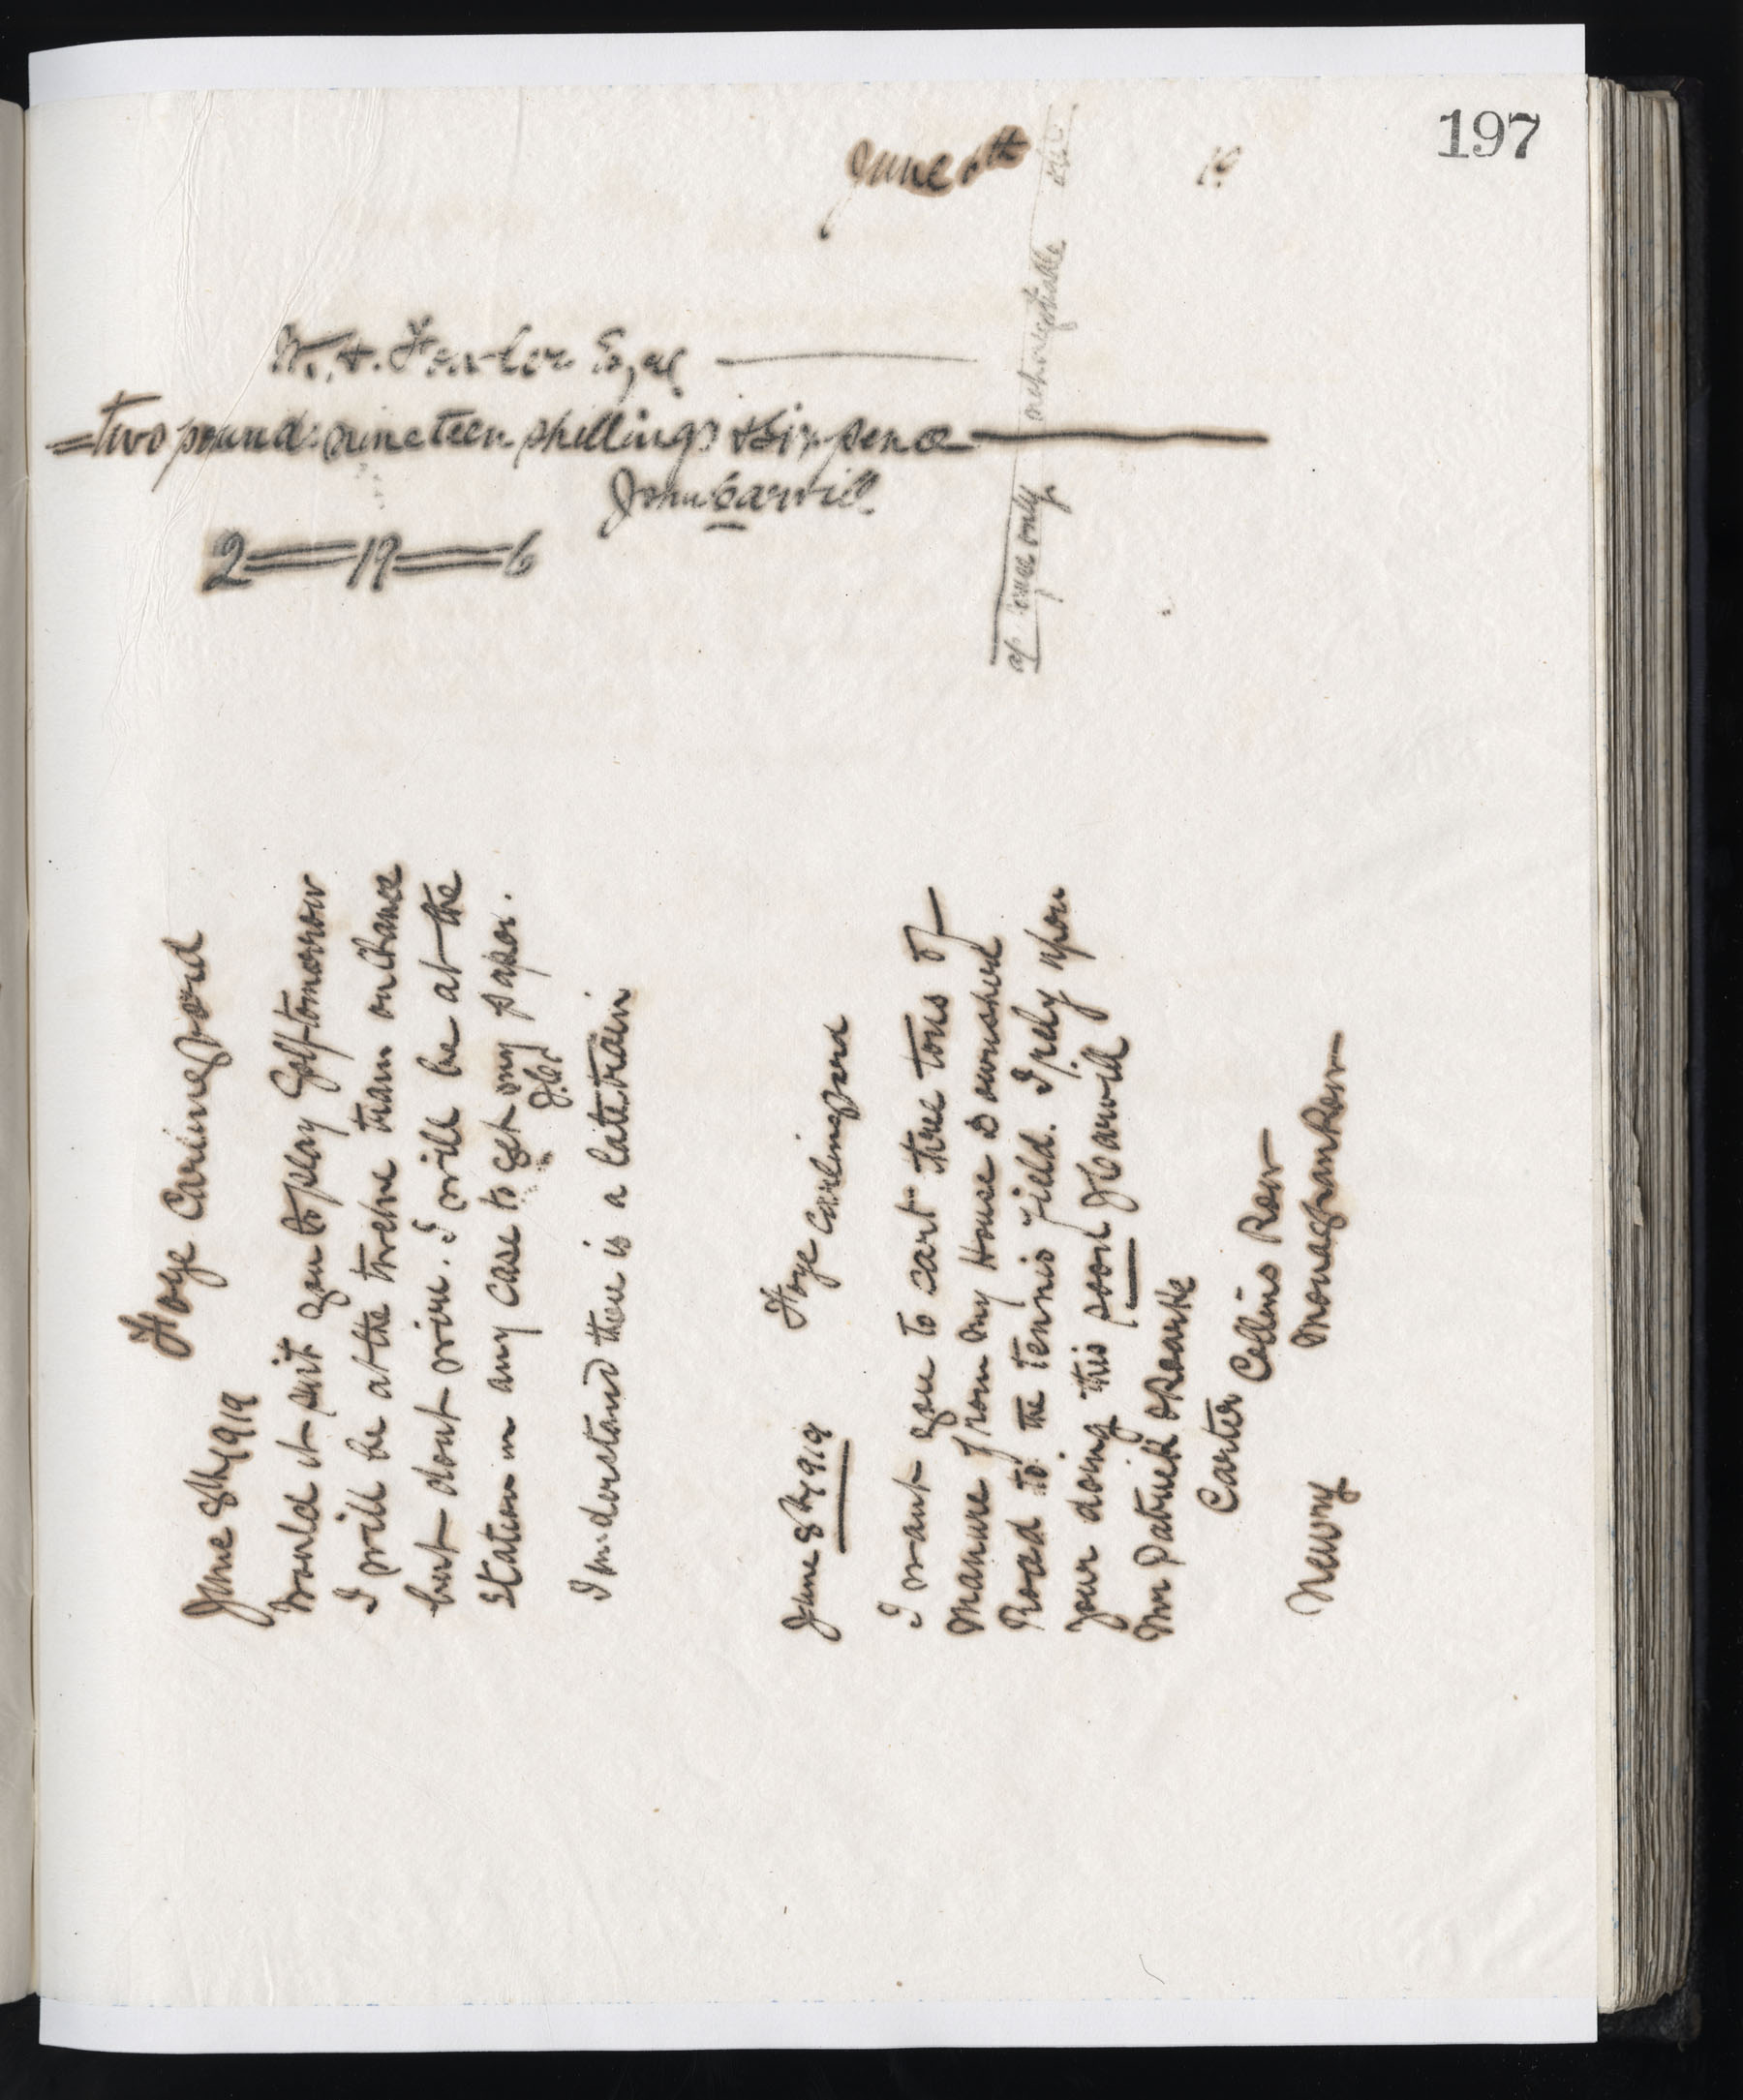 197
June 6th 19
two pounds nineteen shillings & six pence
John Carvill
2=19=6
a/c payee only not negotiable
June 8th 1919 Foye Carlingford
Would it suit you to play Golf tomorrow
I will be at the twelve train on chance
but dont wire. I will be at the
Station in any case to get my paper.
J.C.
I understand there is a late train
June 8th 1919 Foye Carlingford
I want you to cart three tons of
manure from my House Downshire
Road to the tennis field. I rely upon
your doing this soon J Carvill
Mr Patrick ORourke
Carter Collins Row
Newry Monaghan Row